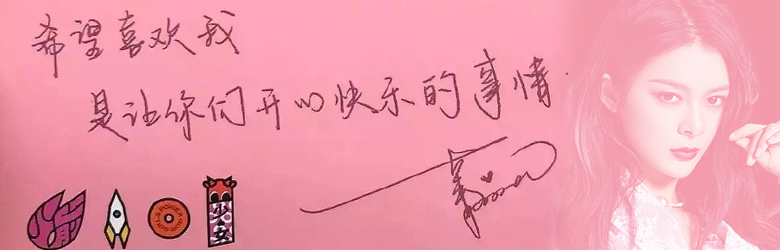 希望喜欢我
是让你们开心快乐的事情.
少女